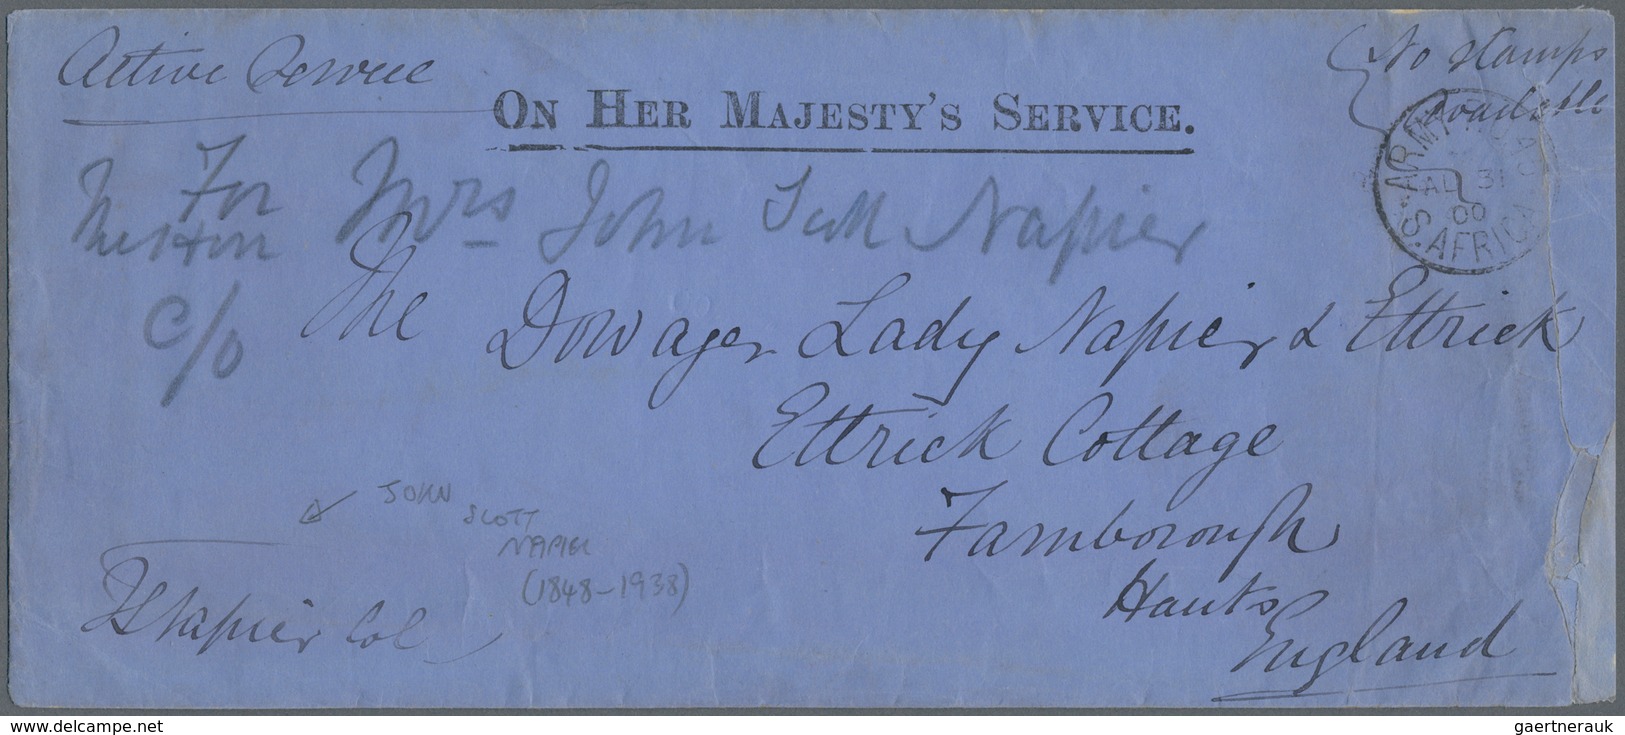 Active Service
No stamps
available
ON HER MAJESTY'S SERVICE.
ARMY
AU 31
00
S. AFRICA
For Mrs John Napier
c/o
The Dowager Lady Napier & Ettrick
Ettrick Cottage
Farnborough
Hants
England
JOHN
SCOTT
NAPIER
(1848-1938)
JSNapier Col
www.delcampe.net
gaertnerauk